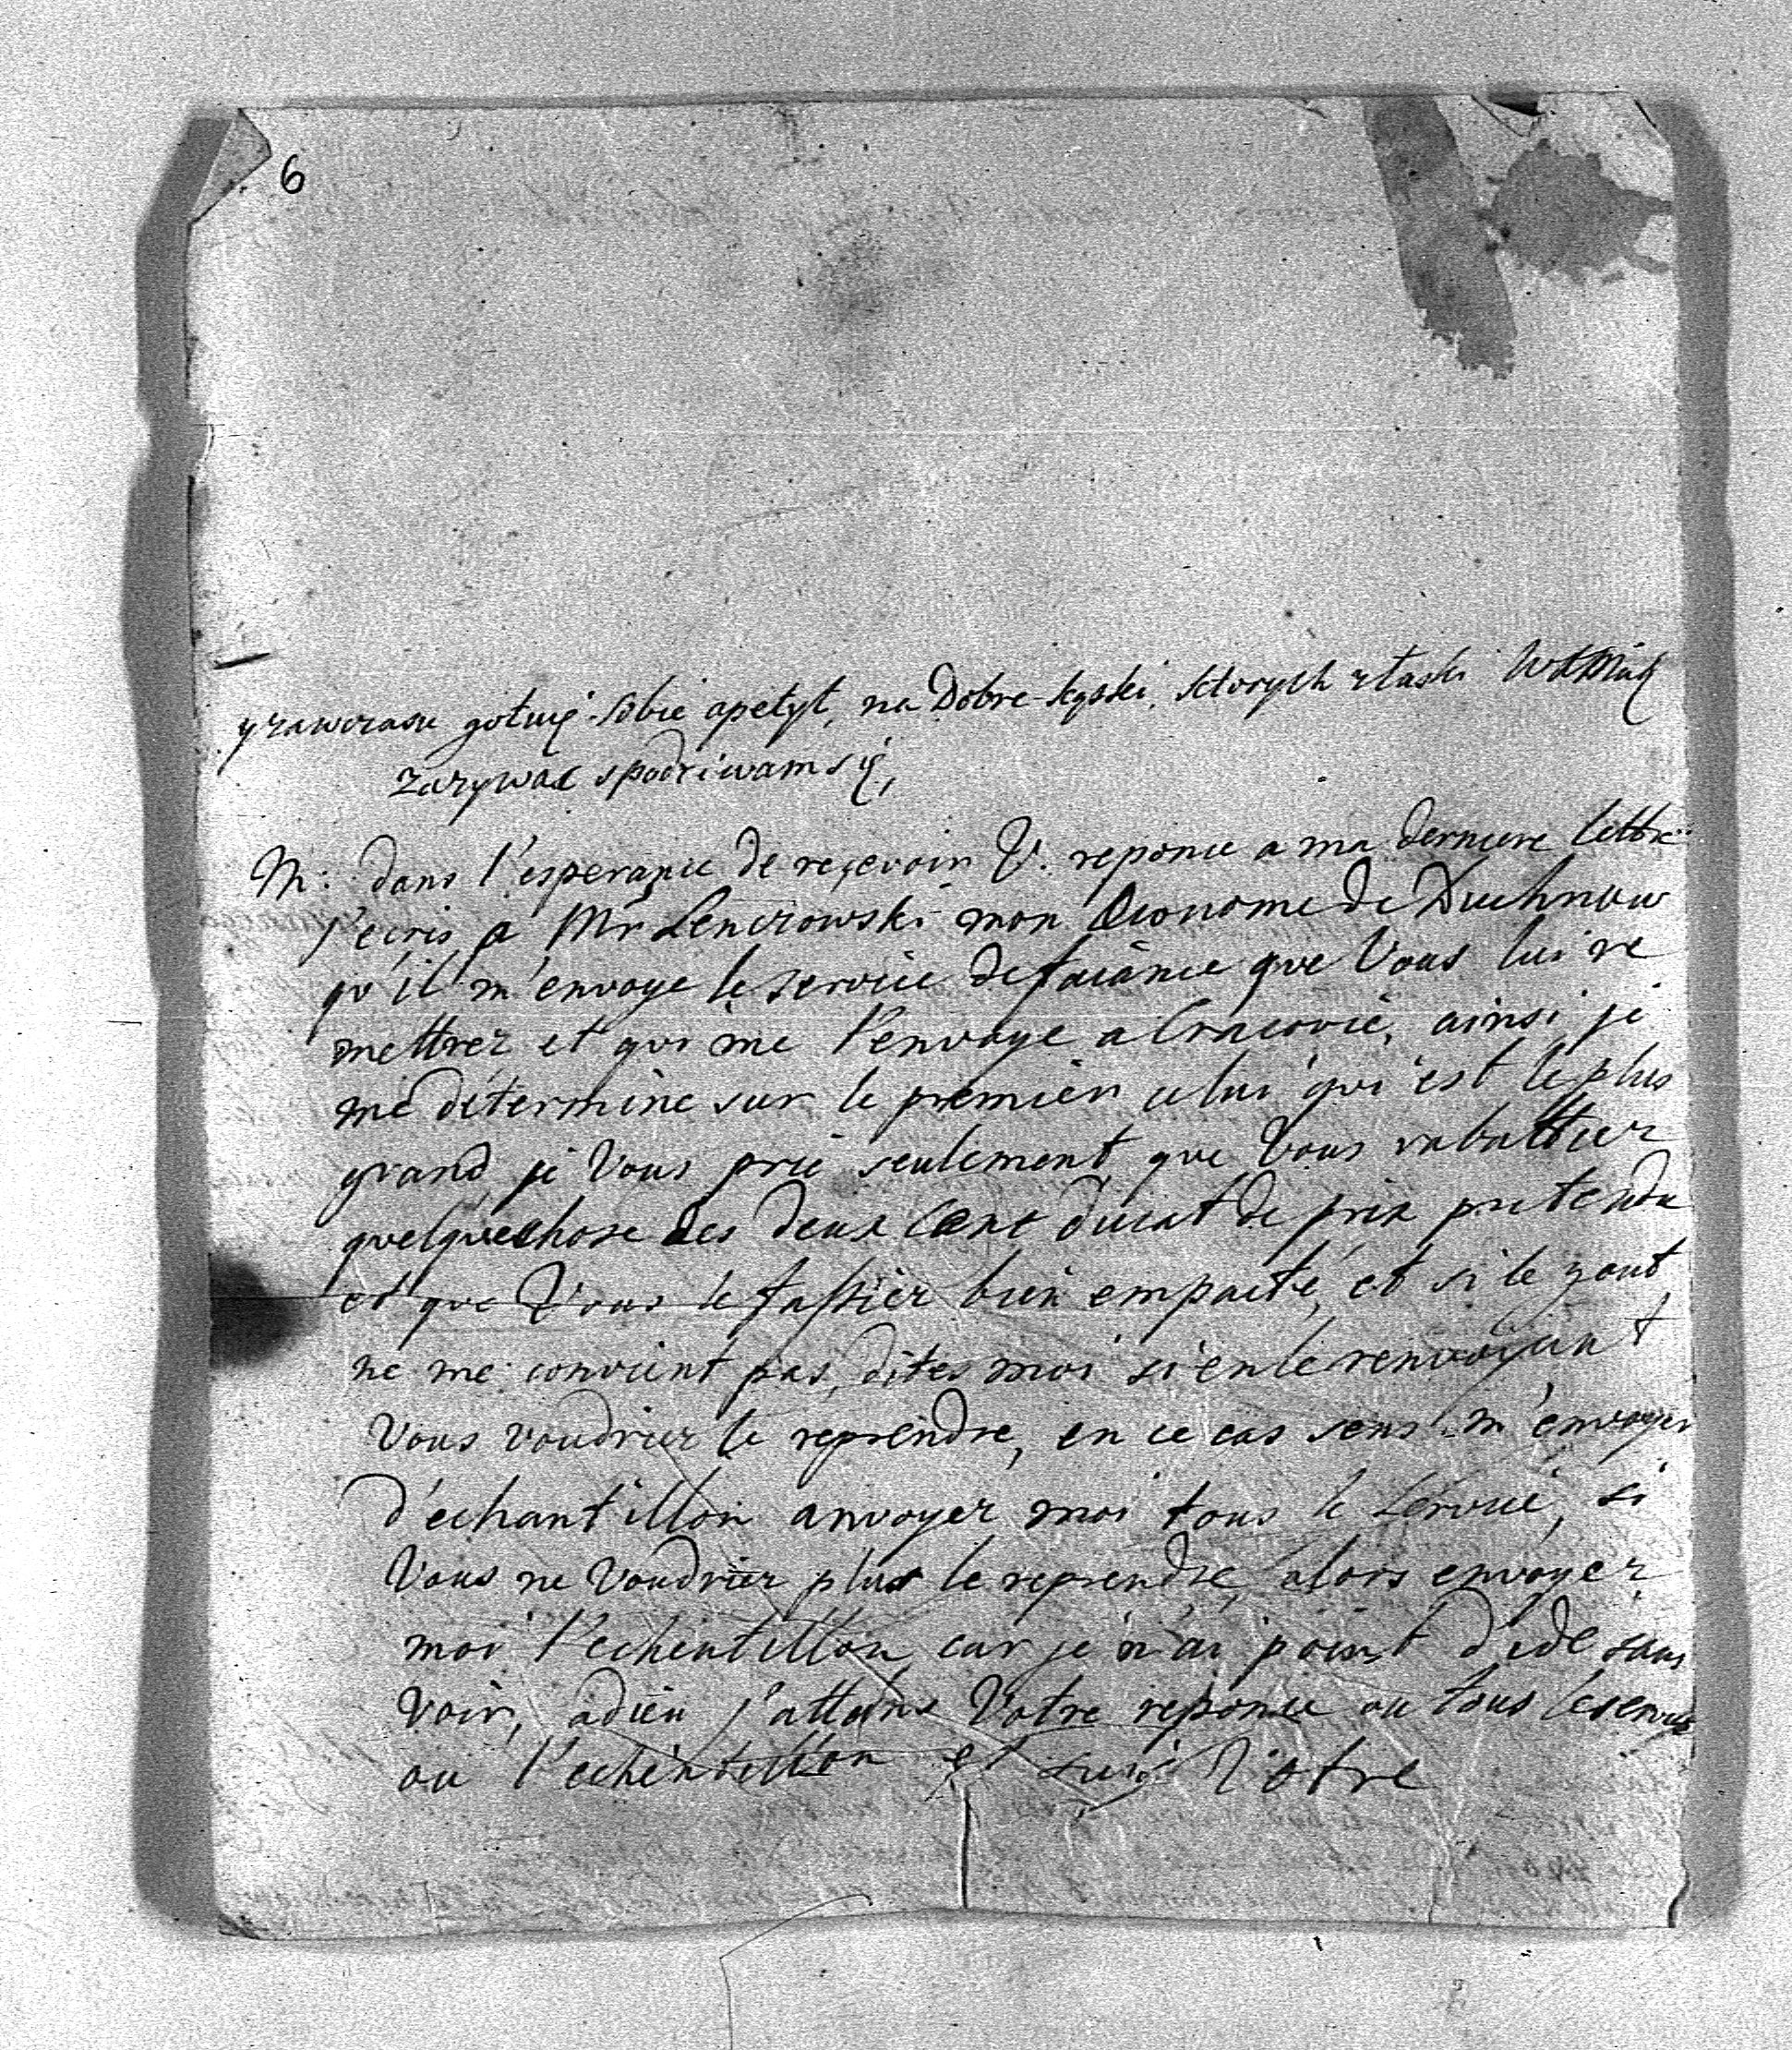 6
y zawczasu gotuię sobie apetyt, na Dobre kąski, ktorych złaski
zazywac spodziwam się,
M: dans l'esperançe de reçevoir V. reponce a ma derniere lettre
j'ecris a Mr Lenczowski mon Oeconome de Duchnow
qu'il m'envoye le service de faiance que Vous lui re
mettrez et qui me l'envoye a Cracovie, ainsi je
me determine sur le premier celui qui est le plus
grand je Vous prie seulement que Vous rabattiez
quelquechose des deux Cent ducat de prix pretendu
et que Vous le fassiez bien empacté, et si le gout
ne me convient pas, dites moi si en le renvoyant
Vous voudriez le reprendre, en ce cas sens m'envoyer
d'echantillon anvoyez moi tous le Service, si
Vous ne Voudriez plus le reprendre, alors envoyez
moi l'echentillon car je n'ai point d'ide sans
voir, adieu j'attens Votre reponce ou tous le service
ou l'echentillon et suis Votre